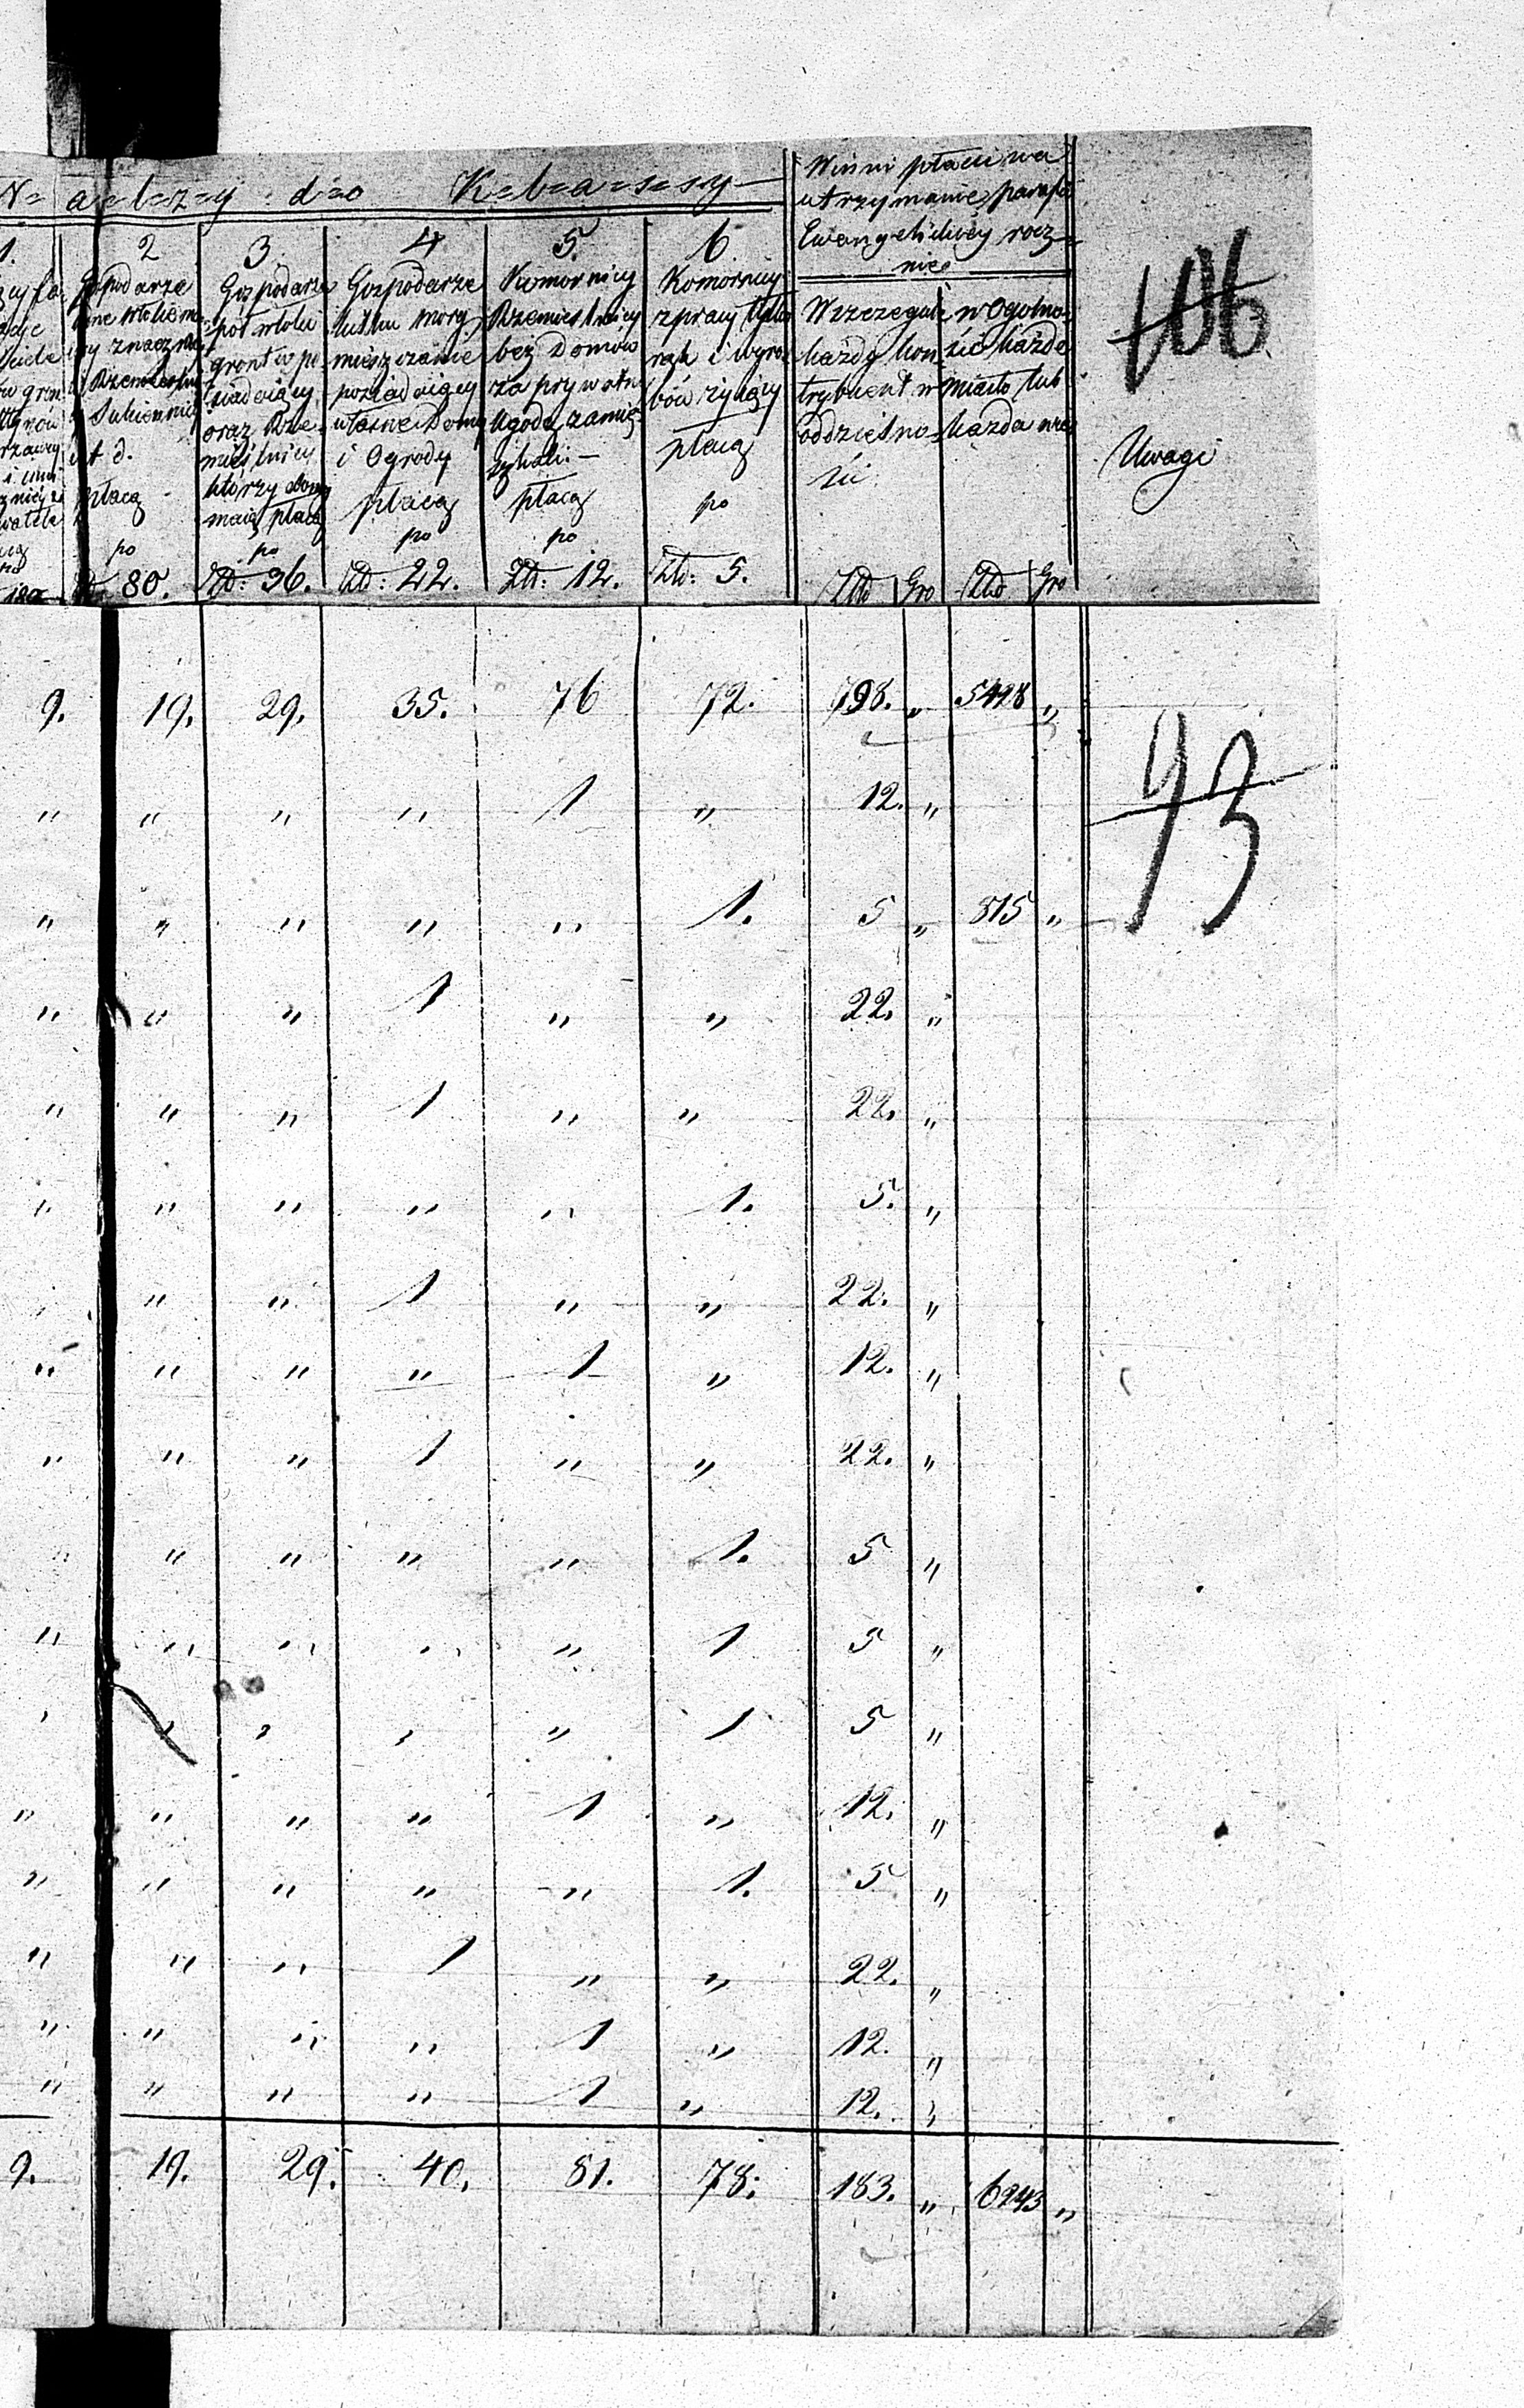 Należy do Klassy
Winni płacić na
utrzymanie parafii
Ewangelickiey rocz-
nie
106
1.
2
Gospodarze
znaczni
Sukiennicy
i t d.
płacą
po
Zld: 80.
3
Gospodarze
pół włóki
gruntu po
siadaiący
oraz Rze-
mieślnicy
którzy domy
maią płacą
po
Złd: 36.
4
Gospodarze
kilku morg
mieszczanie
posiadaiący
własne Domy
i Ogrody
płacą
po
Złd: 22.
5.
Komornicy
Rzemieslnicy
bez Domów
za prywatn
Ugodą zamie
szkali.—
płacą
po
Złt: 12.
6
Komornicy
z pracy tylko
rąk i wyro
bów żyiący
płacą
po
Złd: 5.
W szczegule
każdy kon
trybuent w
oddzielno-
ści.
Złd Gro
w Ogolno-
ści każde
miasto lub
każda wieś
Złd Gro
Uwagi
9. 19. 29. 35. 76 72. 798. " 5428 "
43
" " " " 1 " 12. "
" " " " " 1. 5 " 815 "
" " " 1 " " 22. "
" " " 1 " " 22. "
" " " " " 1. 5. "
" " " 1 " " 22. "
" " " " 1 " 12. "
" " " 1 " " 22. "
" " " " " 1. 5 "
" " " " " 1 5 "
" " " " " 1 5 "
" " " " 1 " 12. "
" " " " " 1. 5 "
" " " 1 " " 22. "
" " " " 1 " 12. "
" " " " 1 " 12. "
9. 19. 29. 40. 81. 78. 183. " 6243 "